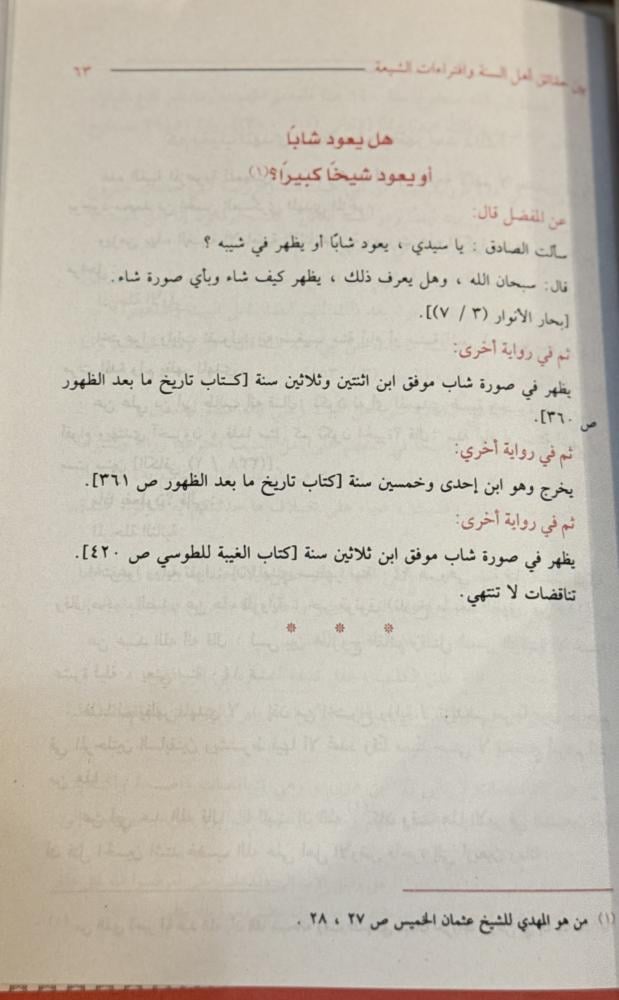 بين حقائق أهل السنة وافتراءات الشيعة ٦٣
هل يعود شابًا
أو يعود شيخًا كبيرًا؟(١)
عن المفضل قال:
سألت الصادق : يا سيدي ، يعود شابًا أو يظهر في شيبه ؟
قال: سبحان الله ، وهل يعرف ذلك ، يظهر كيف شاء وبأي صورة شاء.
[بحار الأنوار (٣ / ٧)].
ثم في رواية أخرى:
يظهر في صورة شاب موفق ابن اثنتين وثلاثين سنة [كتاب تاريخ ما بعد الظهور
ص ٣٦٠].
ثم في رواية أخري:
يخرج وهو ابن إحدى وخمسين سنة [كتاب تاريخ ما بعد الظهور ص ٣٦١].
ثم في رواية أخرى:
يظهر في صورة شاب موفق ابن ثلاثين سنة [كتاب الغيبة للطوسي ص ٤٢٠].
تناقضات لا تنتهي.
(١) من هو المهدي للشيخ عثمان الخميس ص ٢٧ ، ٢٨ .